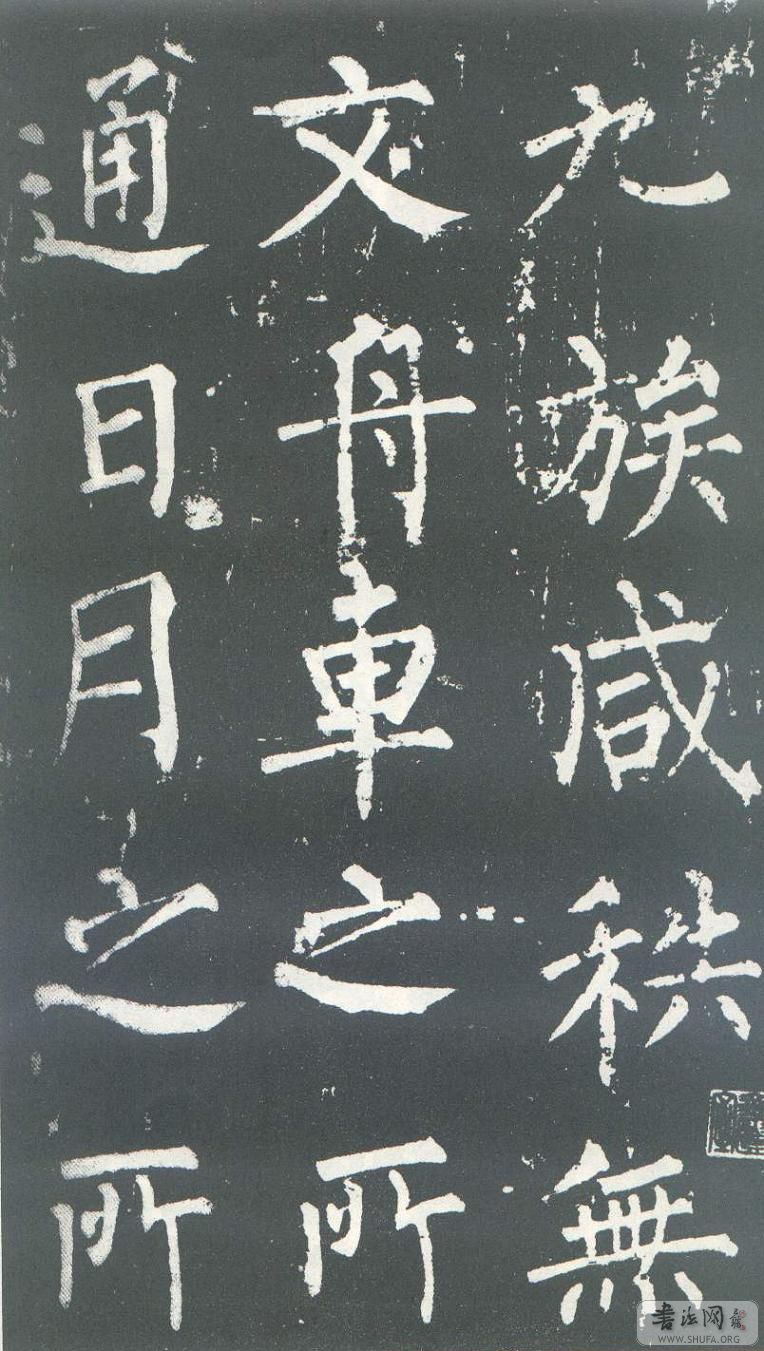 九族咸秩無
文舟車之所
通日月之所
书法网
WWW.SHUFA.ORG